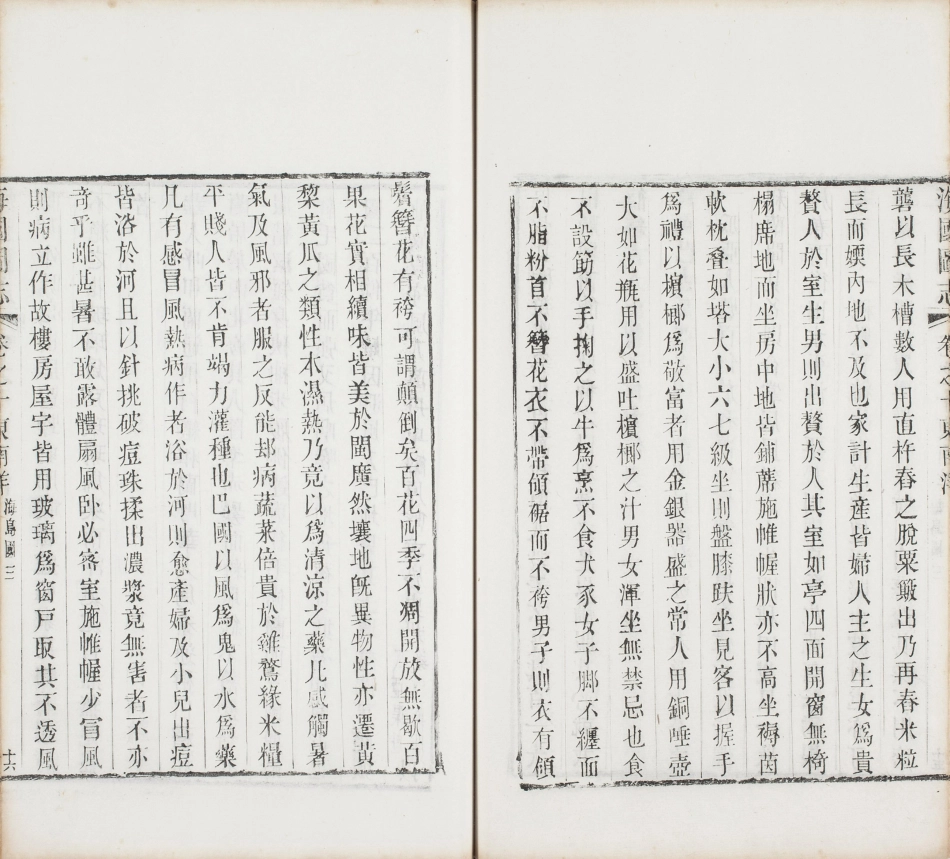 海國圖志 卷之十 東南洋
礱以長木槽數人用直杵舂之脫粟簸出乃再舂米粒
長而媆內地不及也家計生產皆婦人主之生女爲貴
贅人於室生男則出贅於人其室如亭四面開窗無椅
榻席地而坐房中地皆鋪蓆施帷幄牀亦不高坐褥茵
軟枕疊如塔大小六七級坐則盤膝趺坐見客以握手
爲禮以檳榔爲敬富者用金銀器盛之常人用銅唾壺
大如花瓶用以盛吐檳榔之汁男女渾坐無禁忌也食
不設筯以手掬之以牛爲烹不食犬豕女子脚不纏面
不脂粉首不簪花衣不帶領裙而不袴男子則衣有領
鬢簪花有袴可謂顛倒矣百花四季不凋開放無歇百
果花實相續味皆美於閩廣然壤地旣異物性亦遷黃
黎黃瓜之類性本濕熱乃竟以爲清涼之藥凡感觸暑
氣及風邪者服之反能却病蔬菜倍貴於雞鶩緣米糧
平賤人皆不肯竭力灌種也巴國以風爲鬼以水爲藥
凡有感冒風熱病作者浴於河則愈產婦及小兒出痘
皆浴於河且以針挑破痘珠揉出濃漿竟無害者不亦
奇乎雖甚暑不敢露體扇風臥必密室施帷幄少冒風
則病立作故樓房屋宇皆用玻璃爲窗戶取其不透風
海國圖志 卷之十 東南洋 海島國三 十六